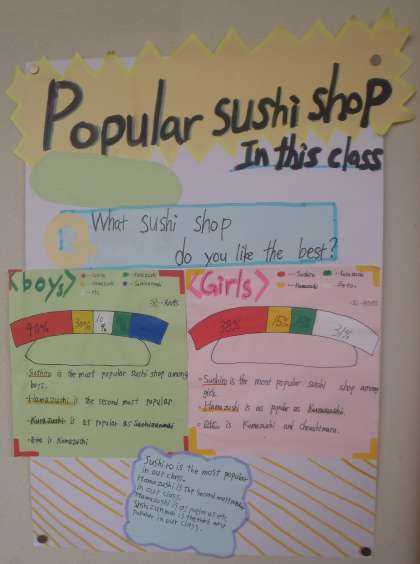 Popular sushi shop
In this class
Q
What sushi shop
do you like the best?
<boys>
Sushiro
Kurazushi
Hamazushi
40%
30%
10%
Sushiro is the most popular sushi shop among
boys.
Hamazushi is the second most popular.
Kurazushi is as popular as
is Kumazushi
<Girls>
Sushiro
Kurazushi
Hamazushi
38%
15%
15%
31%
Sushiro is the most popular sushi shop among
girls.
Hamazushi is as popular as Kurazushi.
is Kumazushi and
Sushiro is the most popular
in our class.
Hamazushi is the second most
in our class.
Hamazushi is as popular
is the third
popular in our class.